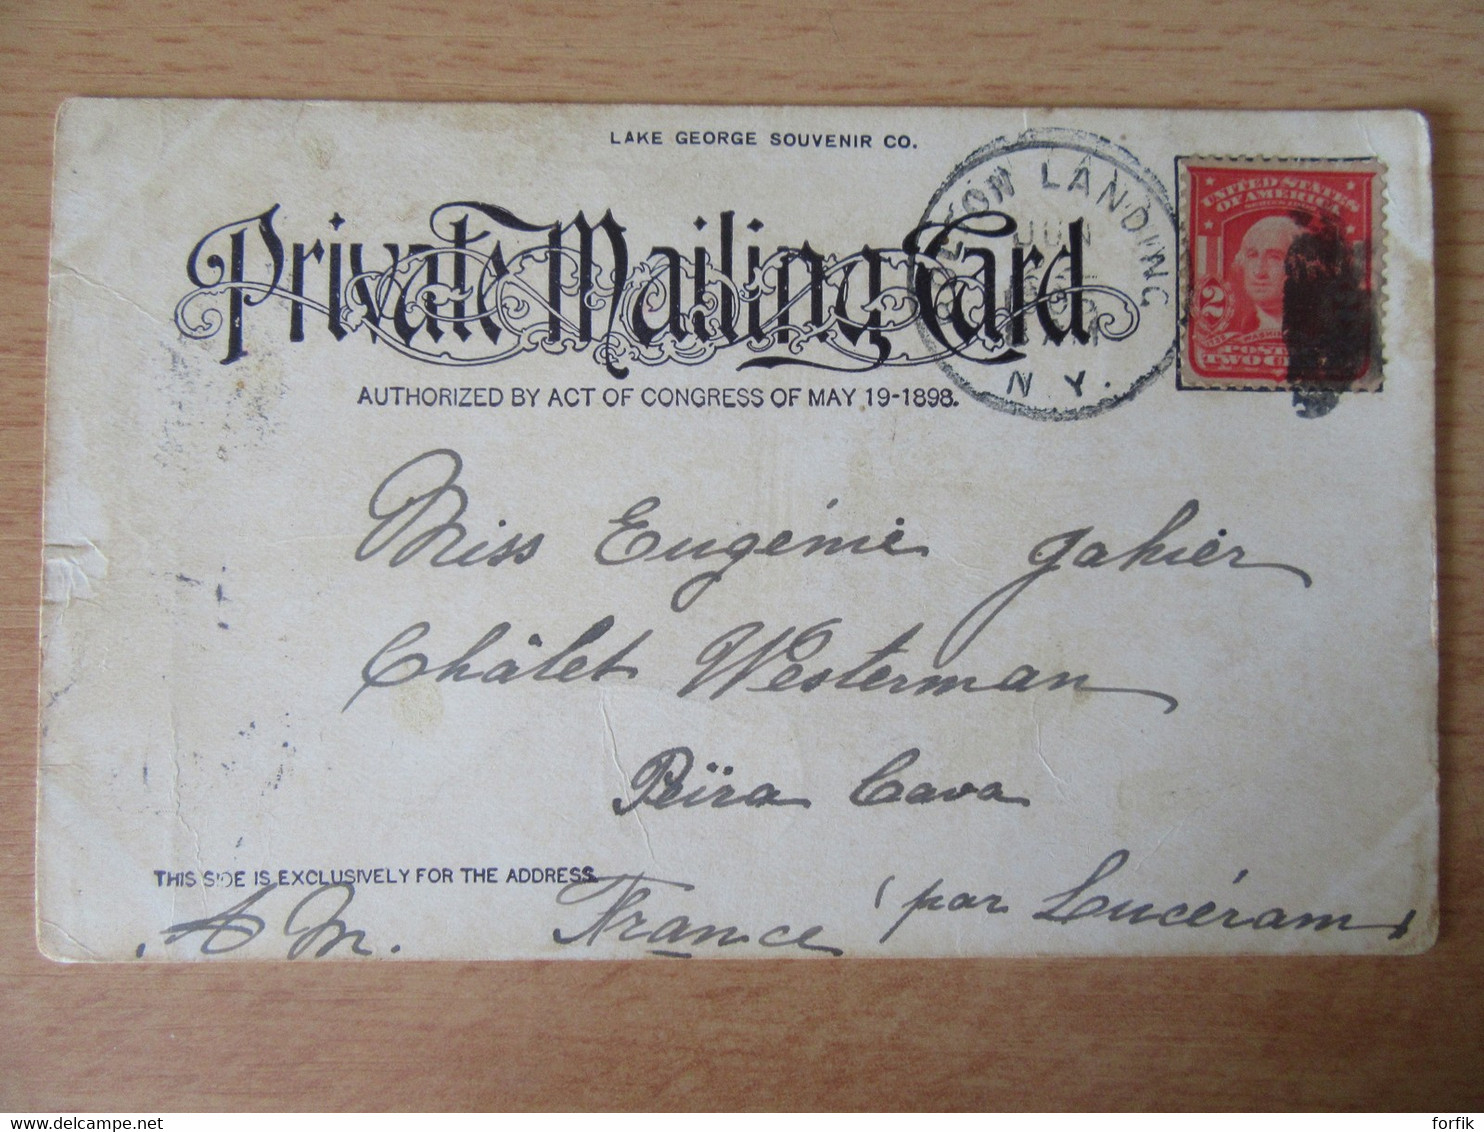 LAKE GEORGE SOUVENIR CO.
Private Mailing Card
AUTHORIZED BY ACT OF CONGRESS OF MAY 19-1898.
LANDING
JUN
N.Y.
UNITED STATES
OF AMERICA
2 2
POSTAGE
TWO
Miss Eugénie Gahier
Châlet Westerman
Peïra Cava
THIS SIDE IS EXCLUSIVELY FOR THE ADDRESS.
A M. France (par Lucéram)
forfik